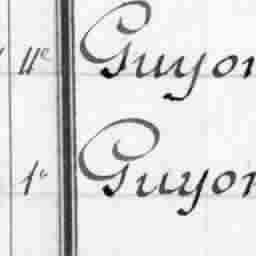 11e Guyon
1e Guyon